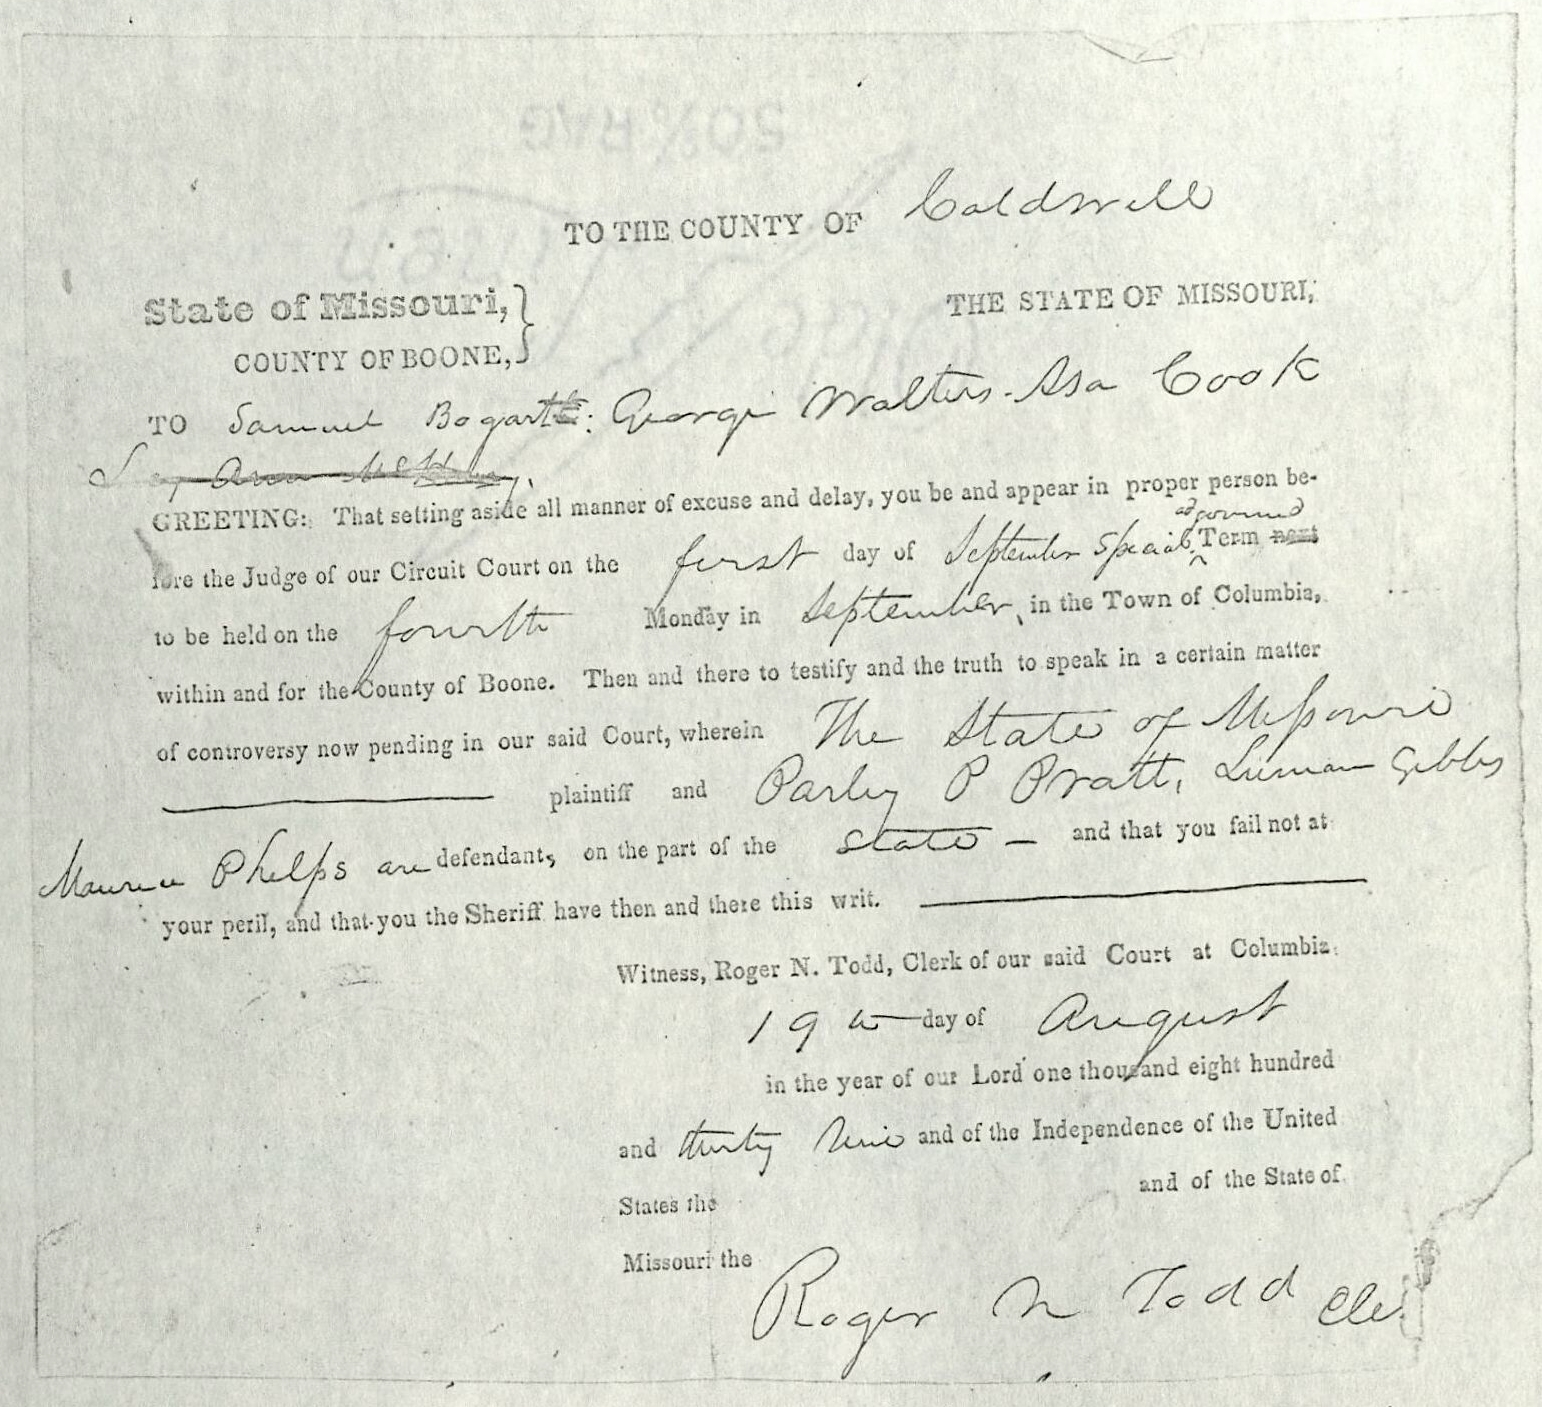 TO THE COUNTY OF Caldwell
State of Missouri,} THE STATE OF MISSOURI,
COUNTY OF BOONE,
TO Samuel Bogart: George Walters - Asa Cook
GREETING: That setting aside all manner of excuse and delay, you be and appear in proper person be-
adjourned
fore the Judge of our Circuit Court on the first day of September Special Term next
to be held on the fourth Monday in September, in the Town of Columbia,
within and for the County of Boone. Then and there to testify and the truth to speak in a certain matter
of controversy now pending in our said Court, wherein The State of Missouri
plaintiff and Parley P Pratt, Luman Gibbs
Maurice Phelps are defendants, on the part of the State — and that you fail not at
your peril, and that you the Sheriff have then and there this writ.
Witness, Roger N. Todd, Clerk of our said Court at Columbia
19th day of August
in the year of our Lord one thousand eight hundred
and thirty nine and of the Independence of the United
States the and of the State of
Missouri the
Roger N Todd Clk
50% RAG